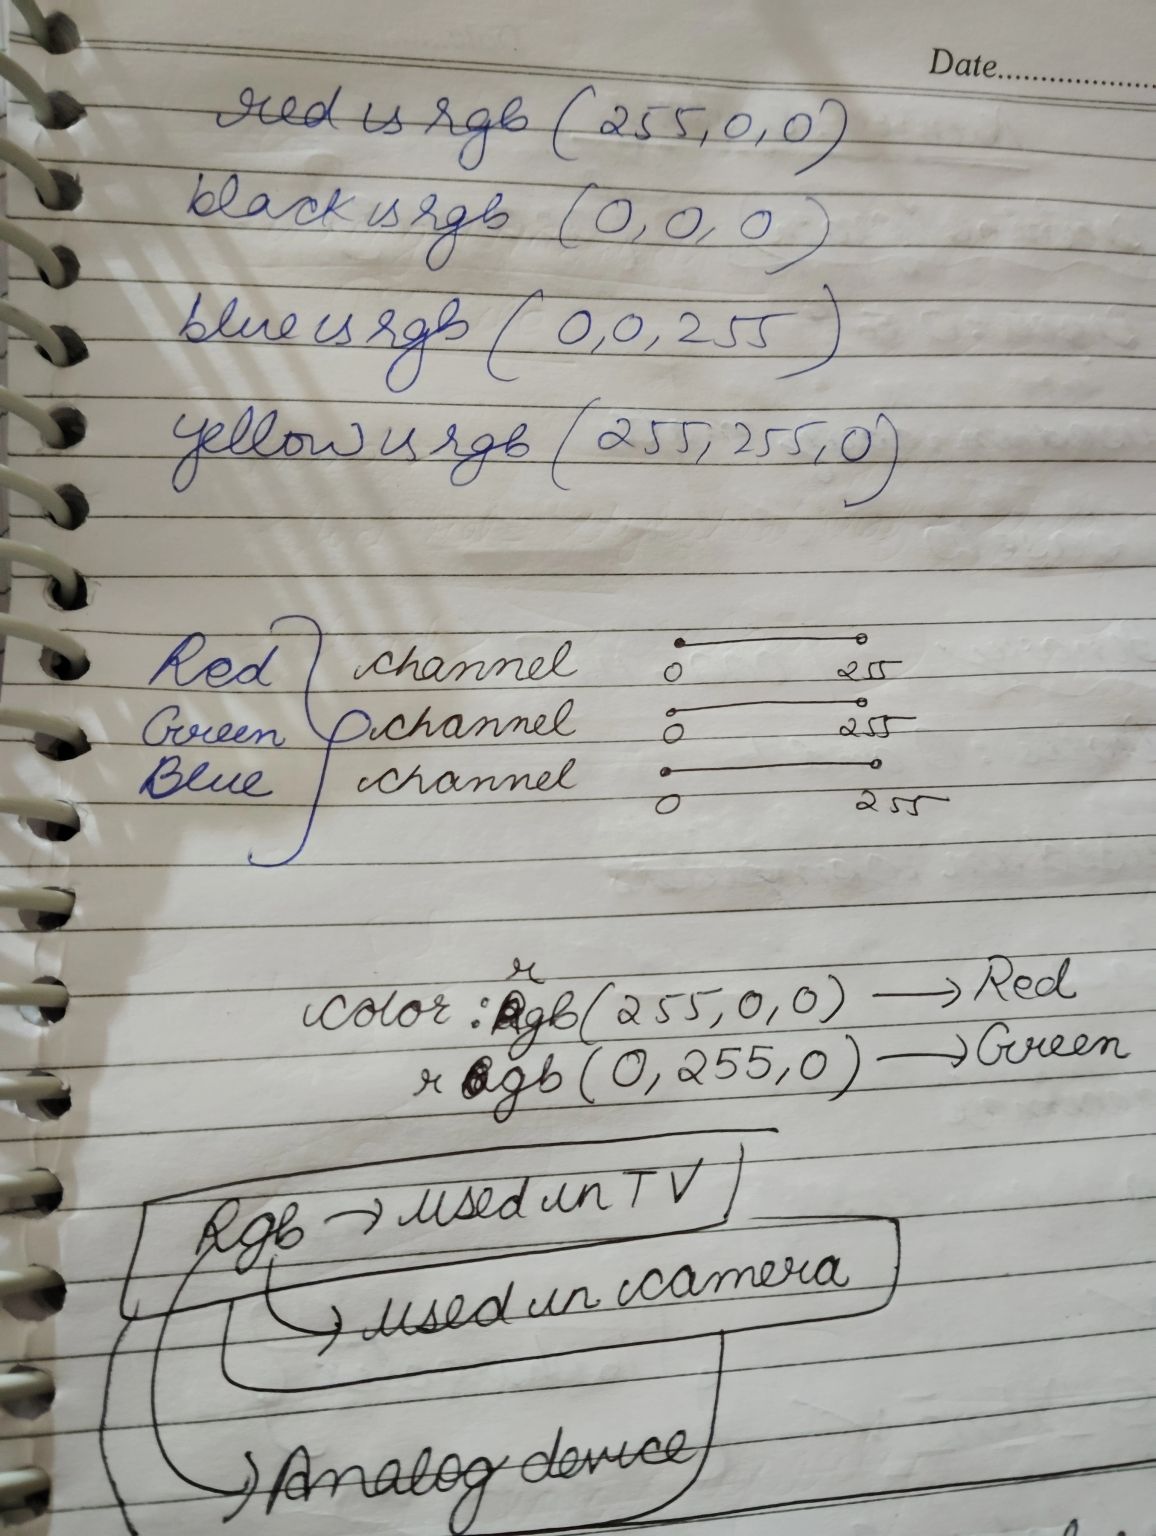 Date....................
red is rgb (255,0,0)
black is rgb (0,0,0)
blue is rgb (0,0,255)
yellow is rgb (255,255,0)
Red channel 0 255
Green channel 0 255
Blue channel 0 255
r
color : Rgb(255,0,0) → Red
rgb(0,255,0) → Green
Rgb → used in TV
→ used in camera
→ Analog device